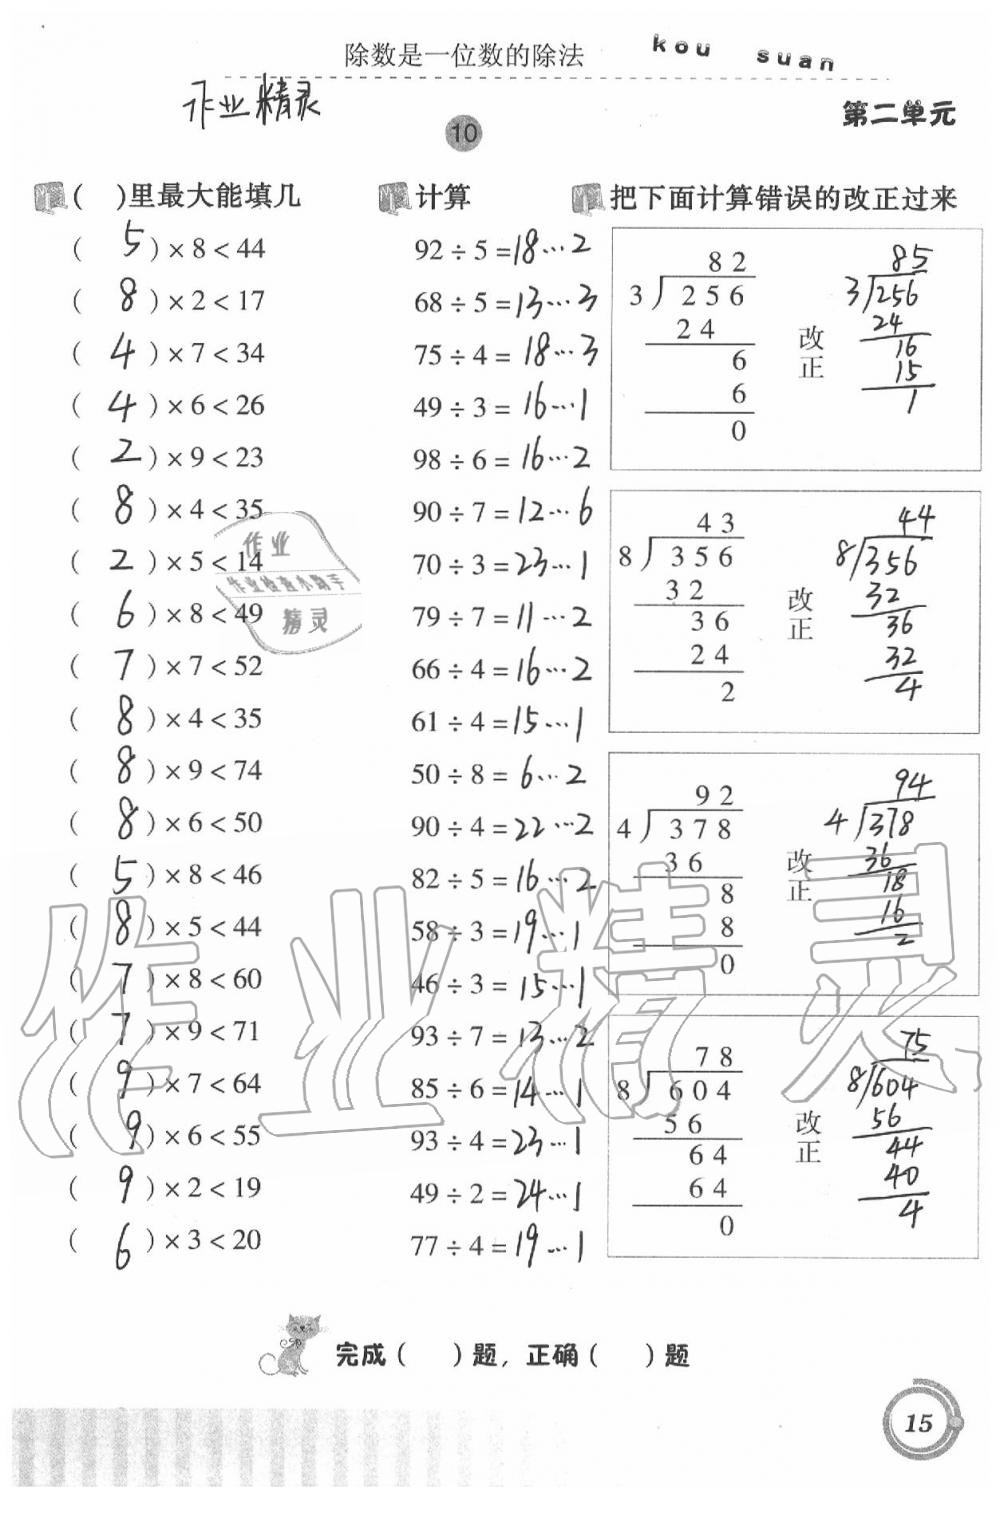 除数是一位数的除法
kou suan
作业精灵
第二单元
10
( )里最大能填几
( 5 )×8<44
( 8 )×2<17
( 4 )×7<34
( 4 )×6<26
( 2 )×9<23
( 8 )×4<35
( 2 )×5<14
( 6 )×8<49
( 7 )×7<52
( 8 )×4<35
( 8 )×9<74
( 8 )×6<50
( 5 )×8<46
( 8 )×5<44
( 7 )×8<60
( 7 )×9<71
( 9 )×7<64
( 9 )×6<55
( 9 )×2<19
( 6 )×3<20
计算
92÷5=18…2
68÷5=13…3
75÷4=18…3
49÷3=16…1
98÷6=16…2
90÷7=12…6
70÷3=23…1
79÷7=11…2
66÷4=16…2
61÷4=15…1
50÷8=6…2
90÷4=22…2
82÷5=16…2
58÷3=19…1
46÷3=15…1
93÷7=13…2
85÷6=14…1
93÷4=23…1
49÷2=24…1
77÷4=19…1
把下面计算错误的改正过来
82
3)256
24
6
6
0
改正
85
3)256
24
16
15
1
43
8)356
32
36
24
2
改正
44
8)356
32
36
32
4
92
4)378
36
8
8
0
改正
94
4)378
36
18
16
2
78
8)604
56
64
64
0
改正
75
8)604
56
44
40
4
作业
作业检查小助手
精灵
作业精灵
完成( )题，正确( )题
15